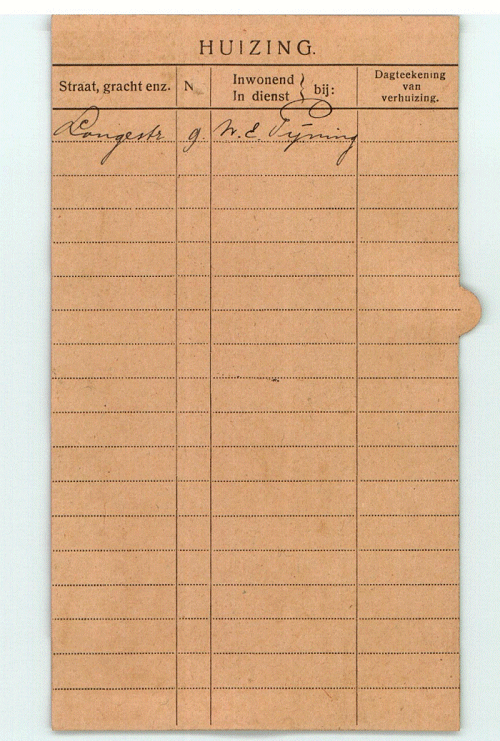 HUIZING.
Straat, gracht enz. N. Inwonend } bij: Dagteekening
In dienst van
verhuizing.
Langestr 9. W. E. Tijning